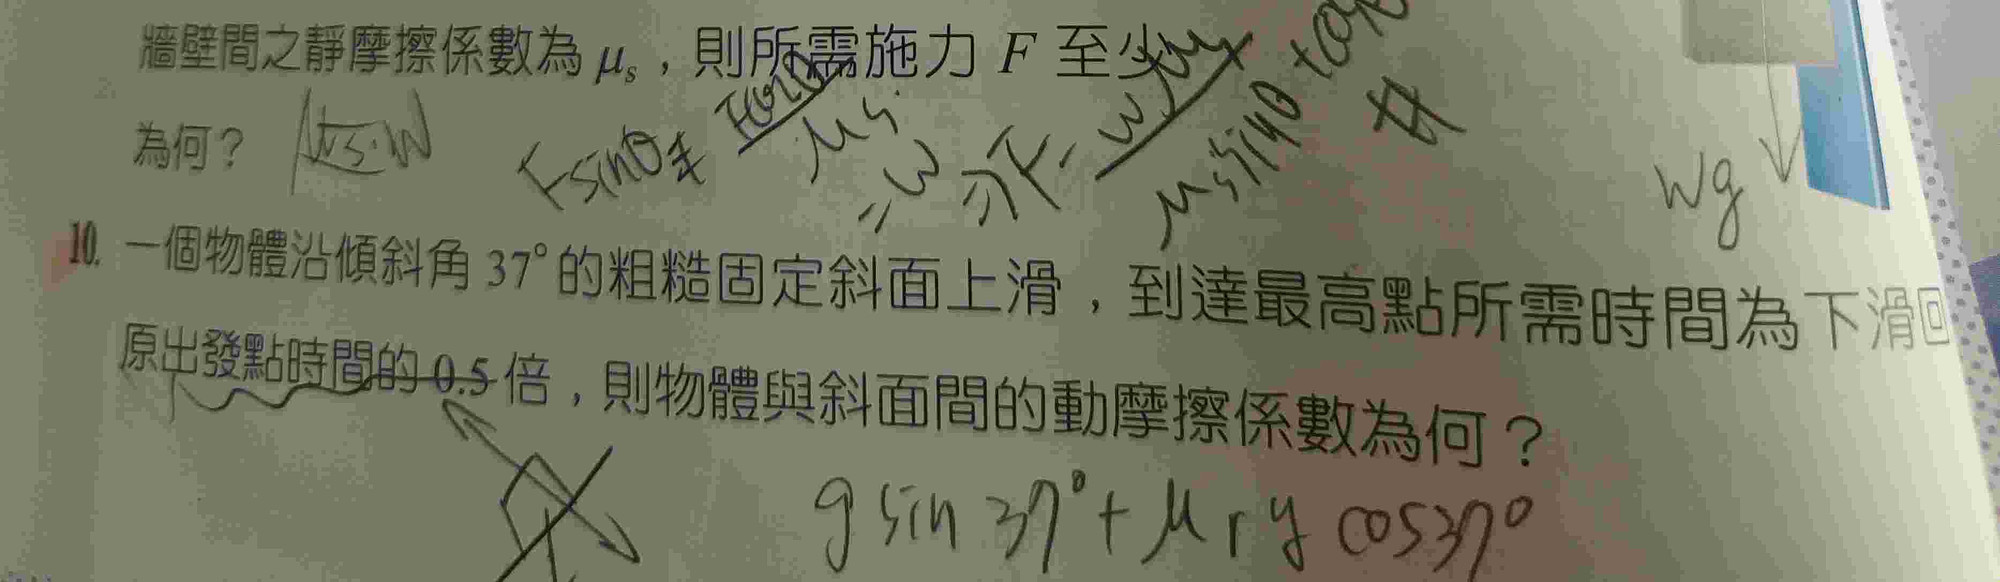 牆壁間之靜摩擦係數為 μs，則所需施力 F 至少
為何？ μs·W
Fsinθ±
μs
=W
⇒F=
W
μssinθ+cosθ
#
Wg
10. 一個物體沿傾斜角 37° 的粗糙固定斜面上滑，到達最高點所需時間為下滑回
原出發點時間的 0.5 倍，則物體與斜面間的動摩擦係數為何？
g sin 37° + μ g cos37°